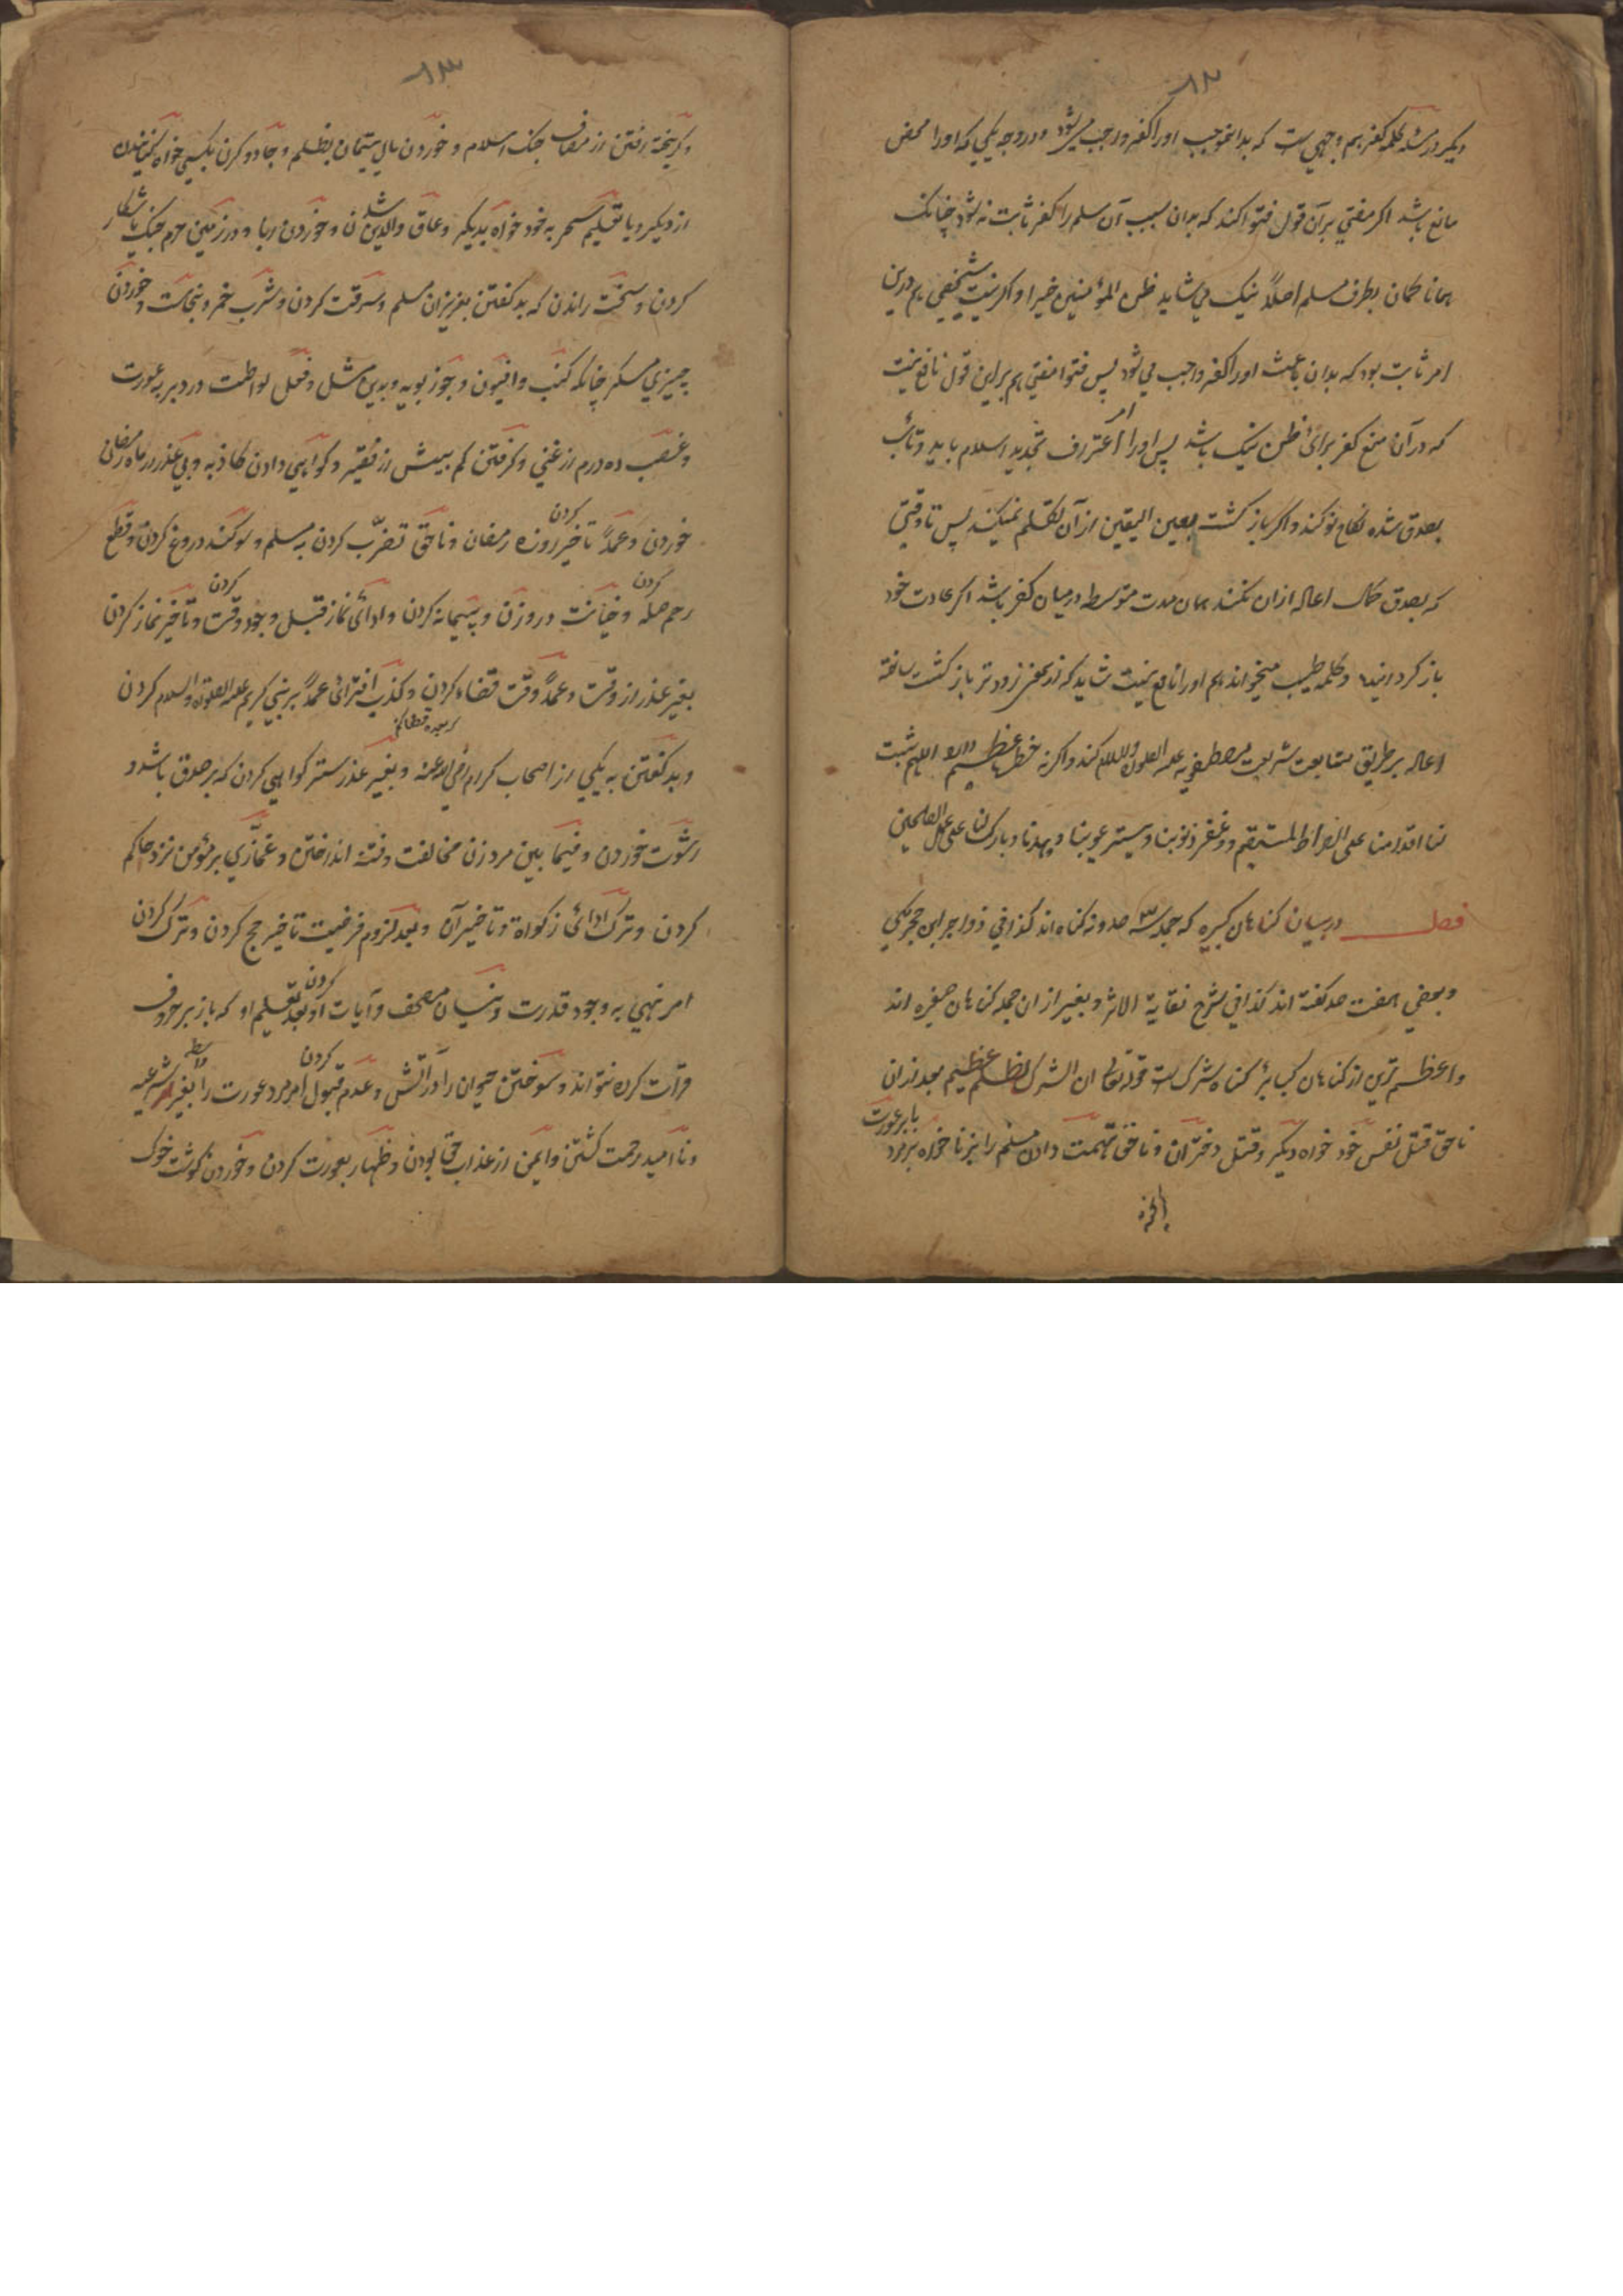 ۸۲
دیگر در مسئله کلمه کفر هم وجهی ست که بدانموجب او را کفر واجب میشود و در وجه یکی که او را محض
مانع باشد اکر مفتي بر آن قول فتوا کند که بدان سبب آن مسلم را کفر ثابت نه شود چنانک
همانا کمان بطرف مسلم اصلاً نیک می شاید ظن المؤمنین خیرا و اکر نیت شخصی هم درین
امر ثابت بود که بدان باعث او را کفر واجب می شود پس فتوا مفتی هم بر این قول نافع نیست
که در آن منع کفر برائ ظن نیک باشد پس او را امر اعتراف تجدید اسلام باید و تائب
بصدق شده نکاح نو کند و اکر باز کشت بعین الیقین از آن تکلم نمیکند پس تا وقتی
که بصدق حال اعاله ازان نکند همان مدت متوسطه درمیان کفر باشد اکر عادت خود
باز کردانیده و کلمه طیب میخواند هم او را نافع نیست شاید که از کفر زودتر باز کشت ساخته
اعاله بر طریق متابعت شریعت مصطفویه علیه الصلوة والسلام کند و اکرنه خطا عظیم دارد اللهم ثبت
لنا اقدامنا علی الصراط المستقیم و غفر ذنوبنا و ستر عیوبنا و یهدنا و بارک لنا علی عمل الصالحین
فصل در بیان کناهان کبیره که جمله سه صد و نه کناه اند کذا فی زواجر ابن حجر مکي
و بعضي هفت صد کفته اند کذا في شرح نقایة الاثر و بغیر از ان جمله کناهان صغیره اند
و اعظم ترین از کناهان کبائر کناه شرک ست قوله تعالی ان الشرک لظلم عظیم بعد ازان
ناحق قتل نفس خود خواه دیکر و قتل دختران و ناحق تهمت دادن مسلم را بزنا خواه بر مرد یا بر عورت
۸۳
و کریخته رفتن از مصاف جنک اسلام و خوردن مال یتیمان بظلم و جادو کردن بکسی خواه کنانیدن
از دیکر و یا تعلیم سحر به خود خواه بدیکر و عاق والدین شدن و خوردن ربا و در زمین حرم جنک یا شکار
کردن و سخت راندن که بد کفتن بعزیزان مسلم و سرقت کردن و شرب خمر و نجاست و خوردن
چیزي مسکر چنانکه کنب و افیون و جوز بویه و بدین مثل و فعل لواطت در دبر به عورت
و غصب ده درم از غني و کرفتن کم بیش از فقیر و کواهي دادن کاذبه و بي عذر در ماه رمضان
خوردن و عمداً تاخیر کردن روزه رمضان و ناحق تضرب کردن به مسلم و سوکند دروغ کردن و قطع
رحم صله کردن و خیانت در وزن و پیمانه کردن و ادائ نماز قبل وجود وقت کردن و تاخیر نماز کردن
بغیر عذر از وقت و عمداً وقت قضاء کردن و کذب افترائ عمداً بر نبي کریم علیه الصلوة والسلام کردن
و بد کفتن به یکی از اصحاب کرام رضی الله عنه و بغیر عذر ستر کواهي کردن که بر صدق باشد و
رشوت خوردن و فیما بین مرد زن مخالفت و فتنه انداختن و غمازي بر مؤمن نزد حاکم
کردن و ترک ادائ زکواة و تاخیر آن و بعد لزوم فرضیت تاخیر حج کردن و ترک کردن
امر نهي به وجود قدرت و نسیان مصحف و آیات کردن بعد تعلیم او که باز بر حروف
قرآت کرده نتواند و سوختن حیوان را در آتش و عدم قبول کردن امر مرد عورت را بغیر واسطه شرعیه
و ناامید رحمت کشتن و ایمن از عذاب حق بودن و ظهار بعورت کردن و خوردن کوشت خوک